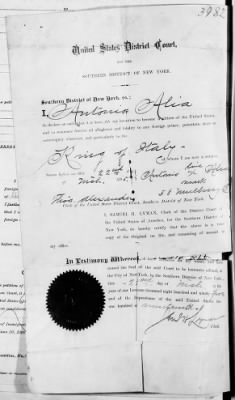 3982
United States District Court,
FOR THE
SOUTHERN DISTRICT OF NEW YORK.
Southern District of New York, ss.:
I, Antonio Alia
do declare on oath that it is bona fide my intention to become a citizen of the United States,
and to renounce forever all allegiance and fidelity to any foreign prince, potentate, state or
sovereignty whatever, and particularly to the
King of Italy
of whom I am now a subject
Sworn before me this 22nd
Antonio
his
mark
58 Mulberry
Alexander
Clerk of the United States District Court, Southern District of New York.
I, SAMUEL H. LYMAN, Clerk of the District Court of
the United States of America, for the Southern District of
New York, do hereby certify that the above is a true
copy of the Original on file, and remaining of record in
my office.
In Testimony Whereof,
seal of the said Court to be hereunto affixed, at
the City of New York, in the Southern District of New York,
this
day of
year of our Lord one thousand eight hundred and ninety-
and of the Independence of the said United States the
one hundred and
Clerk.